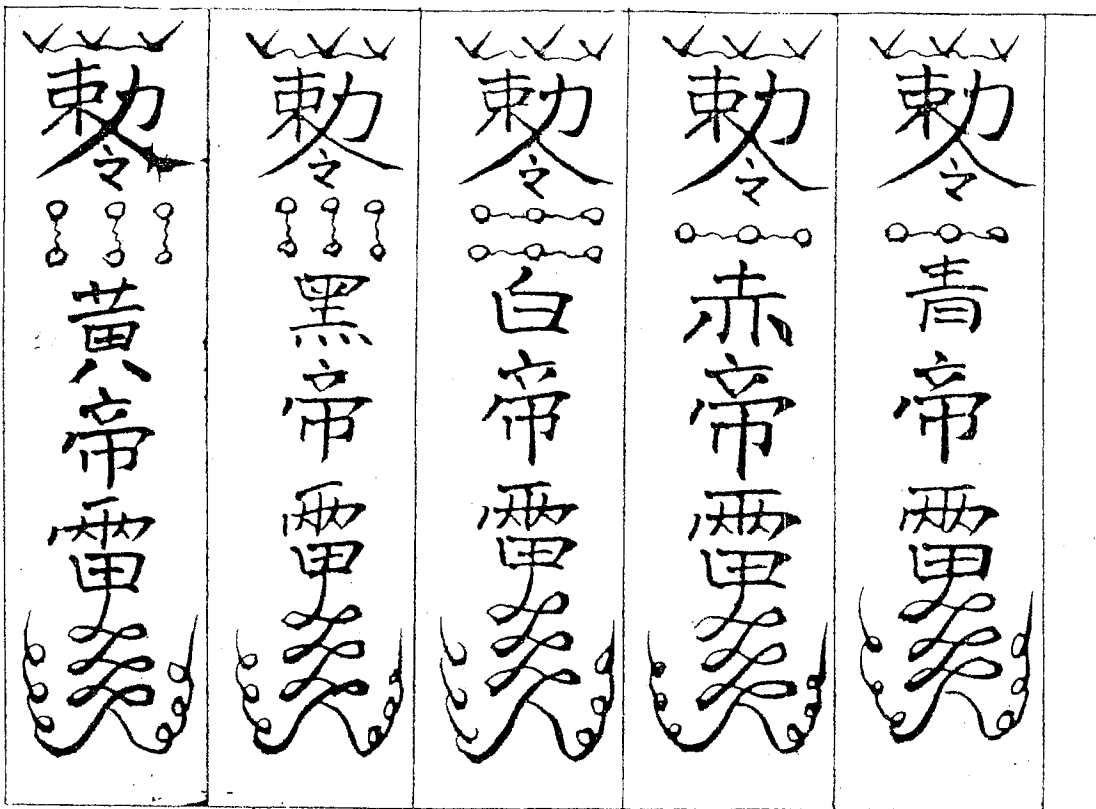 勅令青帝雷
勅令赤帝雷
勅令白帝雷
勅令黑帝雷
勅令黃帝雷